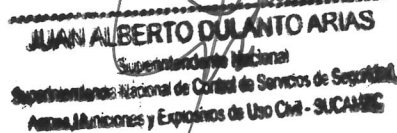 JUAN ALBERTO DULANTO ARIAS
Superintendente Nacional
Superintendencia Nacional de Control de Servicios de Seguridad,
Armas, Municiones y Explosivos de Uso Civil - SUCAMEC